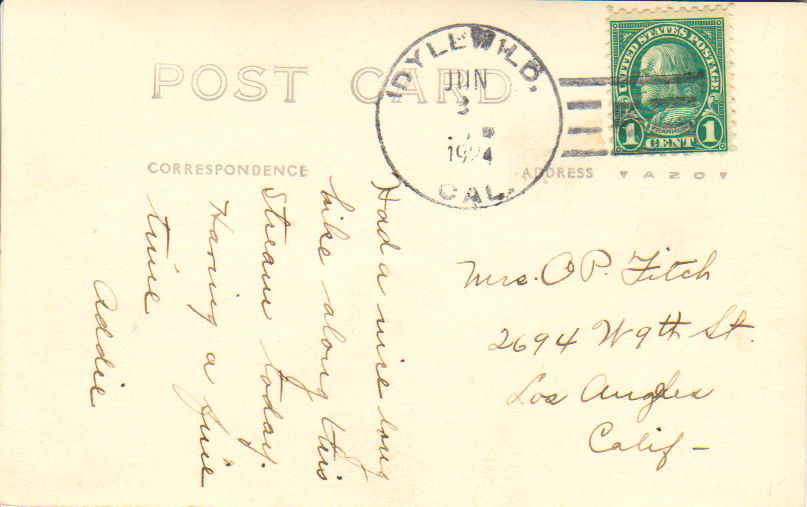 POST CARD
IDYLEWILD,
JUN
3
1924
CAL.
UNITED STATES POSTAGE
1 CENT 1
CORRESPONDENCE
ADDRESS
AZO
Had a nice long
hike along this
stream today.
Having a fine
time
Addie
Mrs. O.P. Fitch
2694 W 9th St.
Los Angles
Calif -